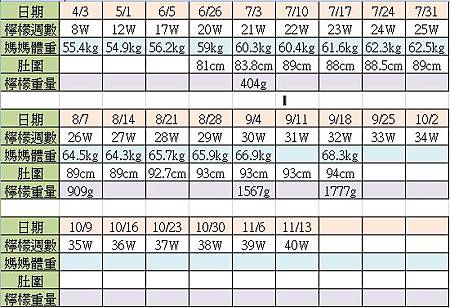 日期 4/3 5/1 6/5 6/26 7/3 7/10 7/17 7/24 7/31
檸檬週數 8W 12W 17W 20W 21W 22W 23W 24W 25W
媽媽體重 55.4kg 54.9kg 56.2kg 59kg 60.3kg 60.4kg 61.6kg 62.3kg 62.5kg
肚圍 81cm 83.8cm 89cm 88cm 88.5cm 89cm
檸檬重量 404g
日期 8/7 8/14 8/21 8/28 9/4 9/11 9/18 9/25 10/2
檸檬週數 26W 27W 28W 29W 30W 31W 32W 33W 34W
媽媽體重 64.5kg 64.3kg 65.7kg 65.9kg 66.9kg 68.3kg
肚圍 89cm 89cm 92.7cm 93cm 93cm 93cm 94cm
檸檬重量 909g 1567g 1777g
日期 10/9 10/16 10/23 10/30 11/6 11/13
檸檬週數 35W 36W 37W 38W 39W 40W
媽媽體重
肚圍
檸檬重量